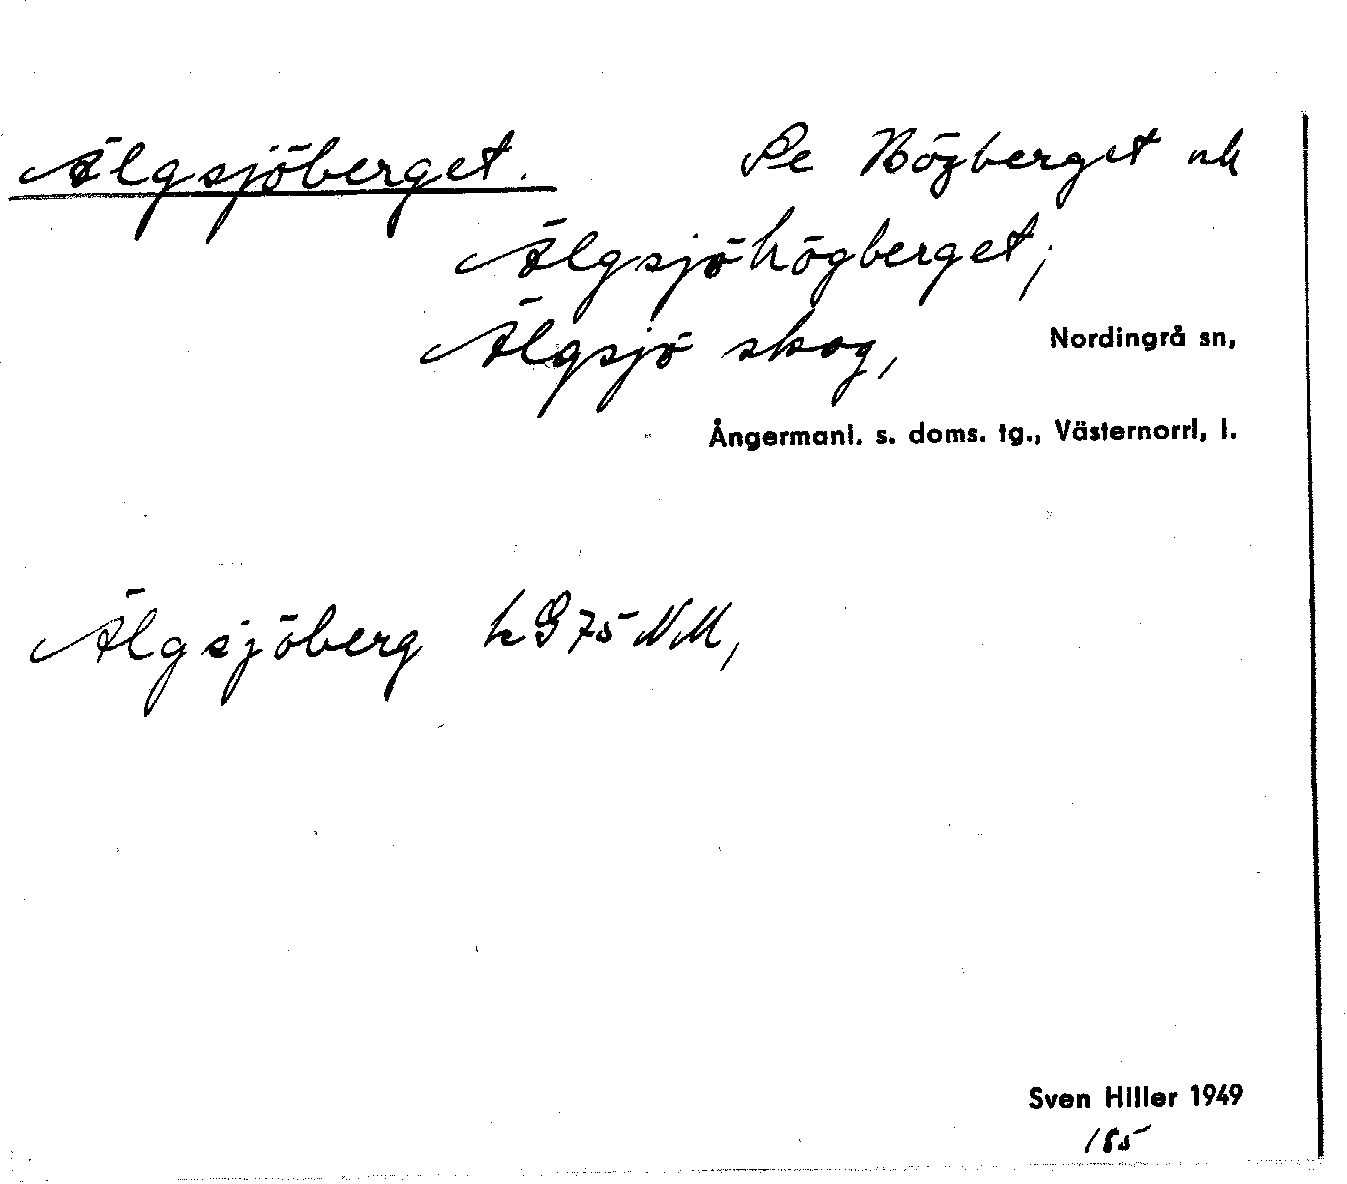 Älgsjöberget. Se Högberget nk
Älgsjöhögberget;
Älgsjö skog, Nordingrå sn,
Ångermanl. s. doms. tg., Västernorrl. l.
Älgsjöberg k G 75 NM,
Sven Hiller 1949
185